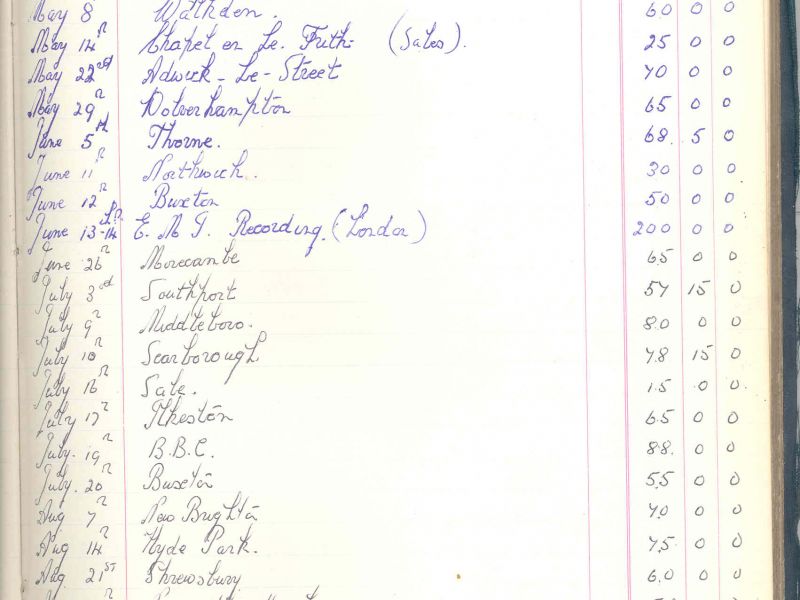 May 8 Walkden. 60 0 0
May 14th Chapel en Le. Frith (Sales). 25 0 0
May 22nd Adwick-Le-Street 70 0 0
May 29th Wolverhampton 65 0 0
June 5th Thorne. 68. 5 0
June 11th Northwich. 30 0 0
June 12th Buxton 50 0 0
June 13-14th E. M I. Recording. (London) 200 0 0
June 26th Morecambe 65 0 0
July 3rd Southport 57 15 0
July 9th Middlesboro. 80 0 0
July 10th Scarborough 78 15 0
July 16th Sale. 15 0 0
July 17th Ilkeston 65 0 0
July. 19th B.B.C. 88. 0 0
July. 20th Buxton 55 0 0
Aug 7th New Brighton 70 0 0
Aug 14th Hyde Park. 75 0 0
Aug. 21st Shrewsbury 60 0 0